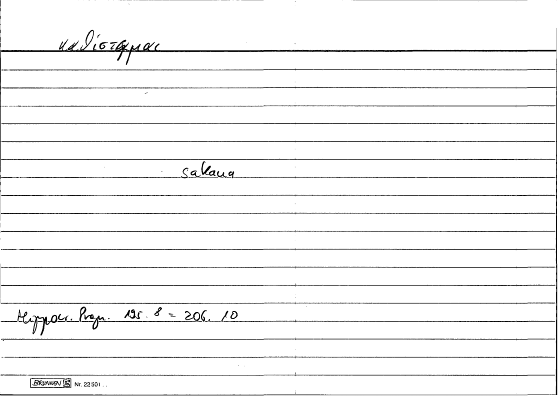 καθίσταμαι
sakana
Hippocr. Progn. 195. 8 = 206. 10
BRUNNEN Nr. 22 501